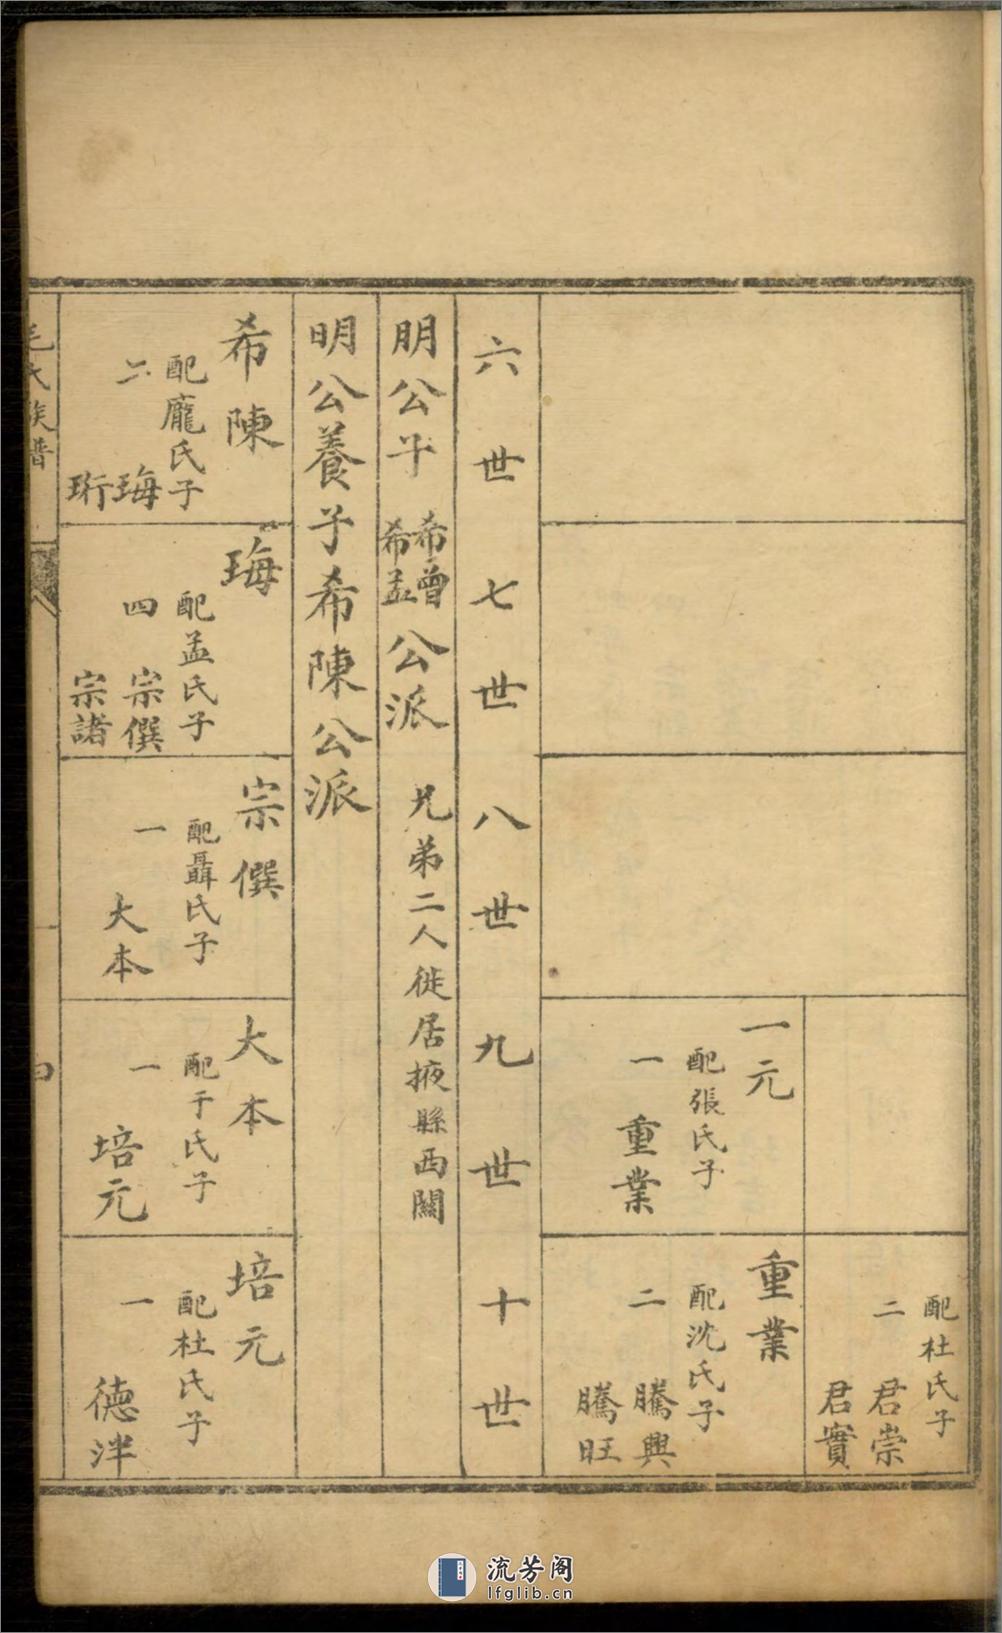 配杜氏子
二
君崇
君實
一元
配張氏子
一
重業
重業
配沈氏子
二
騰興
騰旺
六世 七世 八世 九世 十世
朋公子
希曾
希孟
公派
兄弟二人徙居掖縣西關
明公養子希陳公派
希陳
配龐氏子
二
珻
珩
珻
配孟氏子
四
宗僎
宗諸
宗僎
配聶氏子
一
大本
大本
配于氏子
一
培元
培元
配杜氏子
一
德泮
毛氏族譜
流芳阁
lfglib.cn